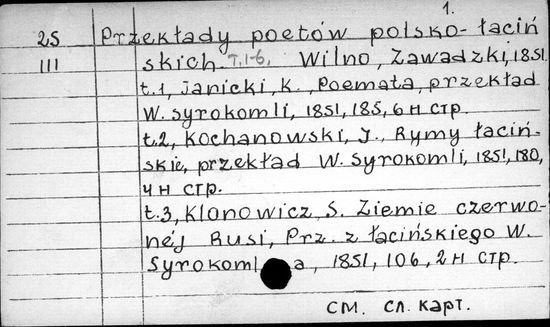 1.
25 Przekłady poetów polsko-łaciń
III skich. T.1-6. Wilno, Zawadzki, 1851.
t.1, Janicki, K., Poemata, przekład
W. Syrokomli, 1851, 185, 6 н стр.
t.2, Kochanowski, J., Rymy łaciń-
skie, przekład W. Syrokomli, 1851, 180,
4 н стр.
t.3, Klonowicz, S. Ziemie czerwo-
néj Rusi, Prz. z łacińskiego W.
Syrokoml a, 1851, 106, 2 н стр.
см. сл. карт.